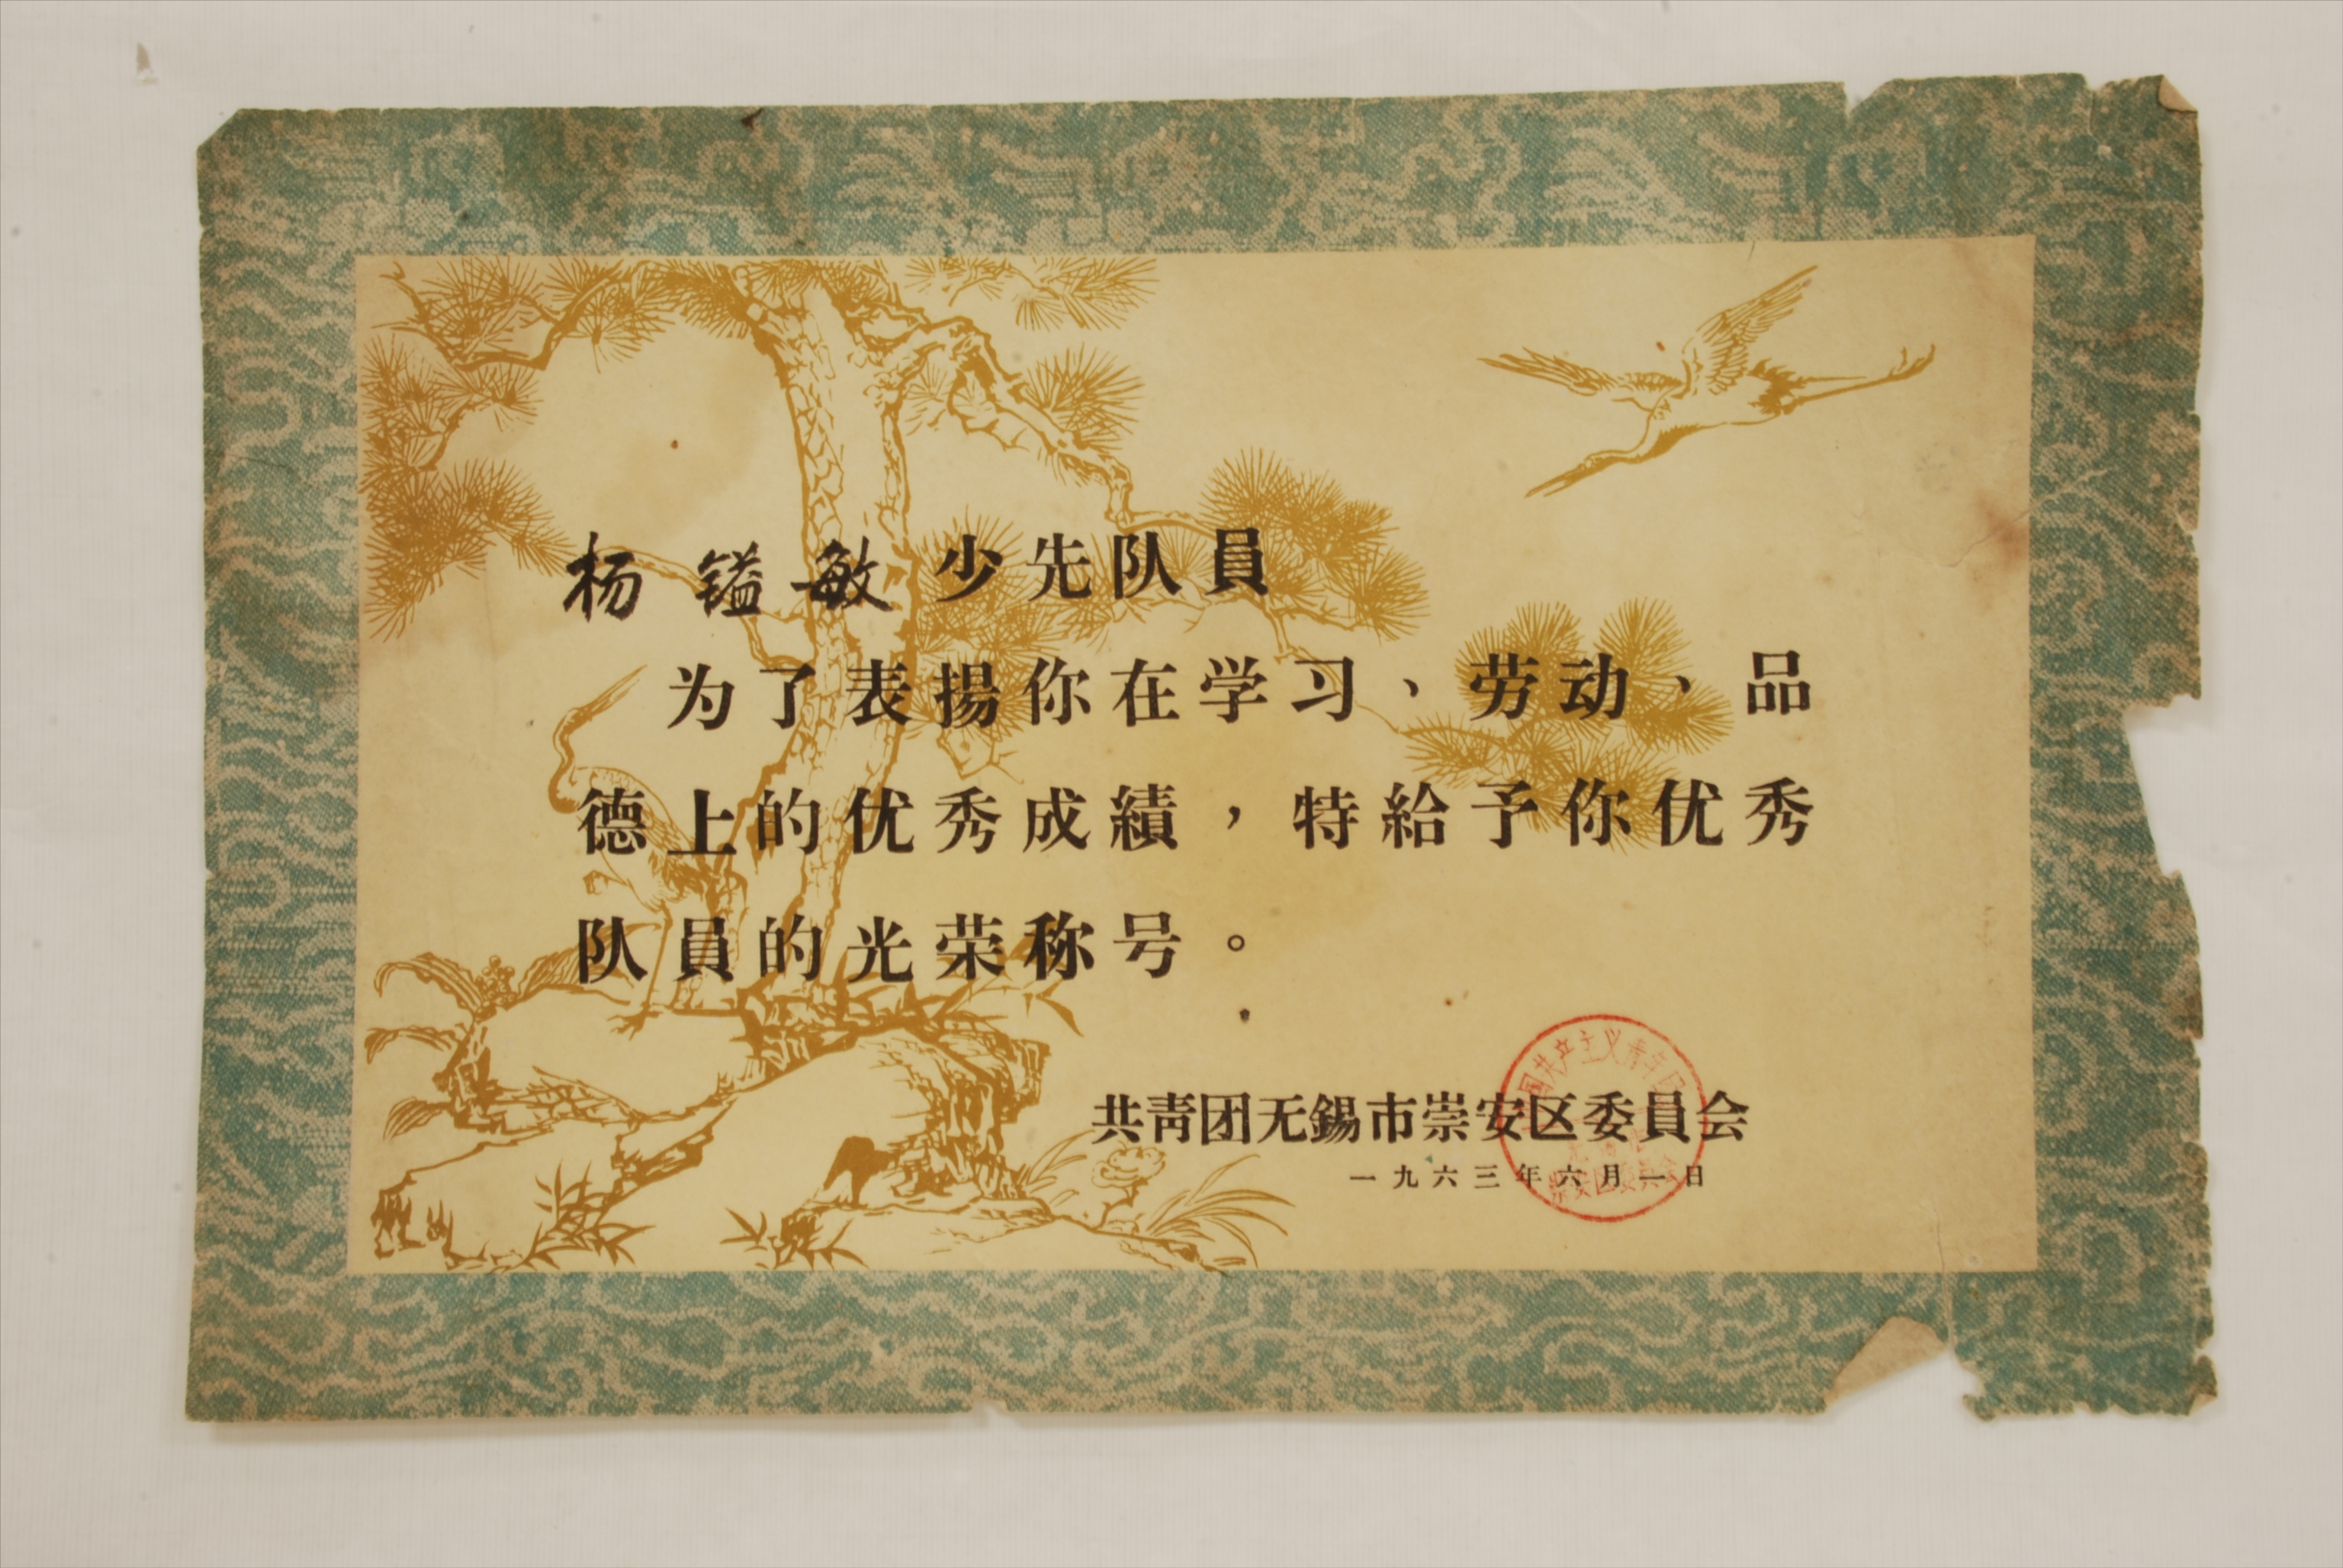 杨镒敏少先队員
为了表揚你在学习、劳动、品
德上的优秀成績，特給予你优秀
队員的光荣称号。
共青团无錫市崇安区委員会
一九六三年六月一日
国共产主义青年团
崇安区委员会